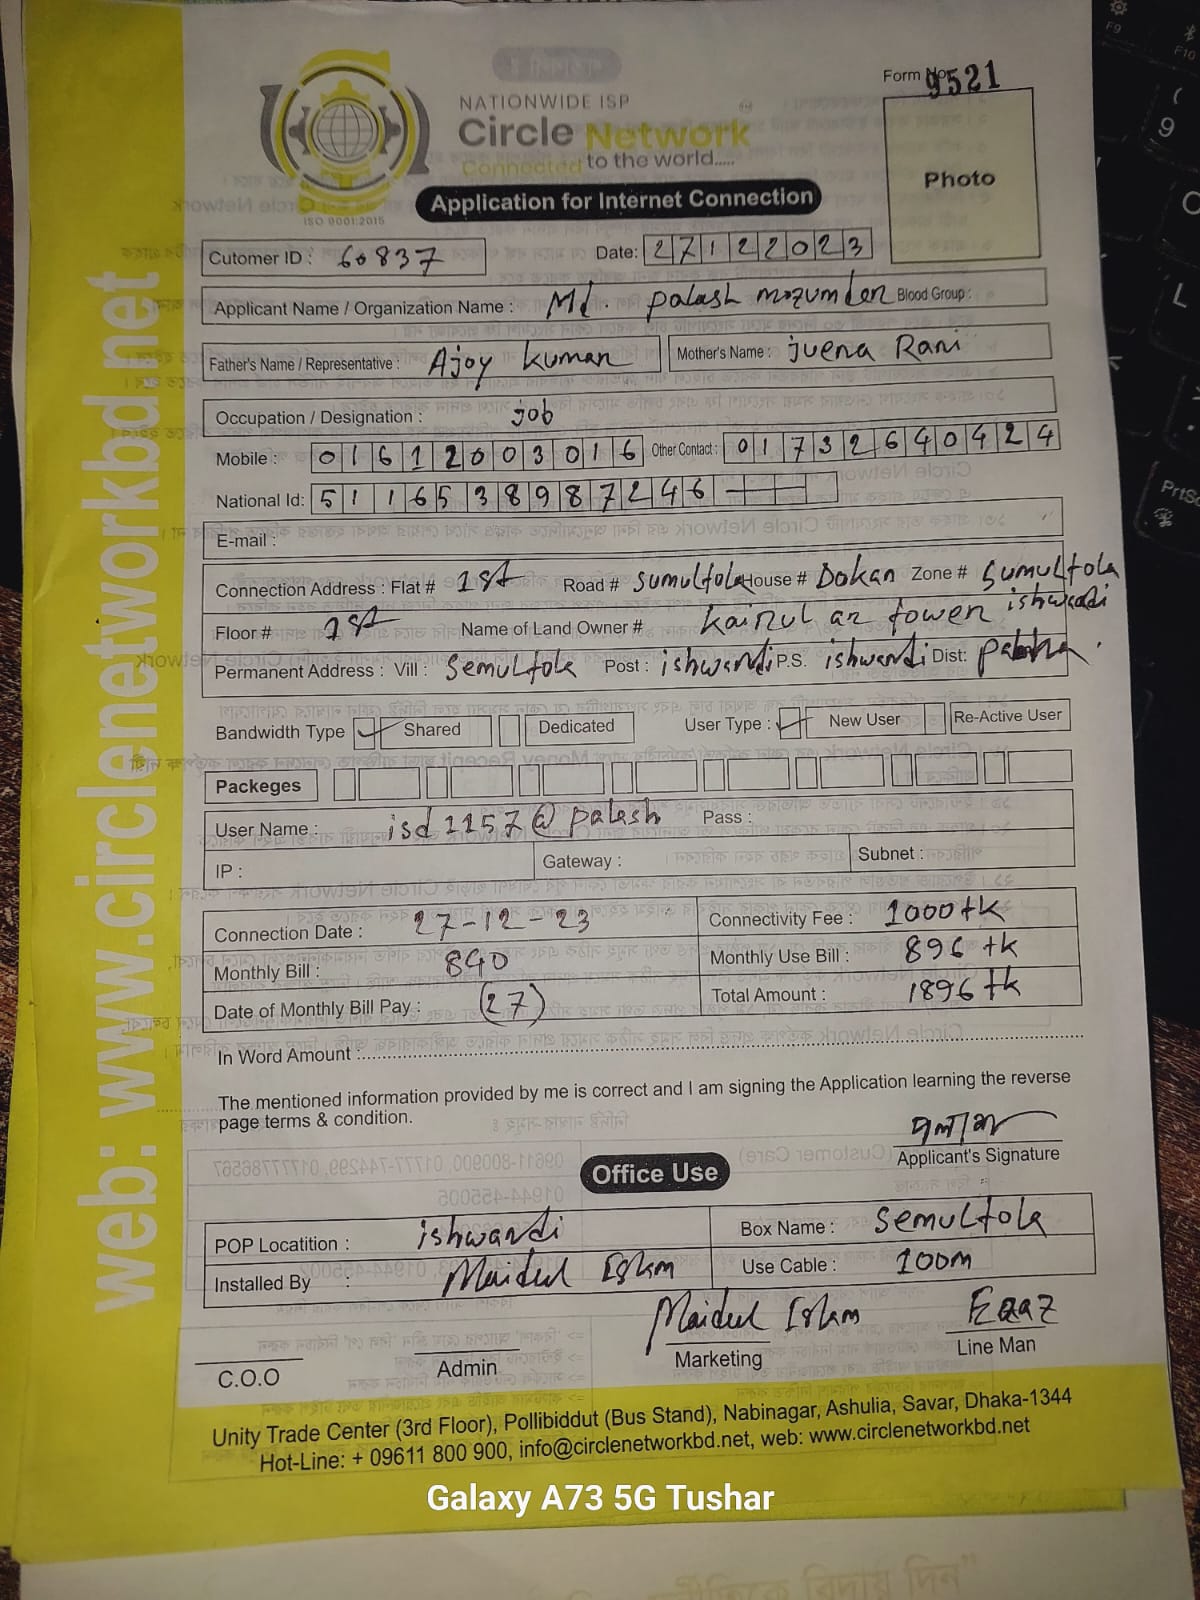 Form No. 9521
NATIONWIDE ISP
Circle Network
Connected to the world.....
ISO 9001:2015
Application for Internet Connection
Photo
Cutomer ID : 60837 Date: 27122023
Applicant Name / Organization Name : Md. Palash mozumder Blood Group :
Father's Name / Representative : Ajoy kuman Mother's Name : juena Rani
Occupation / Designation : job
Mobile : 01612003016 Other Contact : 01732640424
National Id: 5116538987246
E-mail :
Connection Address : Flat # 1st Road # Sumultola House # Dokan Zone # Sumultola
ishwardi
Floor # 1st Name of Land Owner # Kairul an tower
Permanent Address : Vill : Semultola Post : ishwardi P.S. ishwardi Dist: Pabna.
Bandwidth Type Shared Dedicated User Type : New User Re-Active User
Packeges
User Name : isd1157@palash Pass :
IP : Gateway : Subnet :
Connection Date : 27-12-23 Connectivity Fee : 1000 tk
Monthly Bill : 840 Monthly Use Bill : 896 tk
Date of Monthly Bill Pay : (27) Total Amount : 1896 tk
In Word Amount :
The mentioned information provided by me is correct and I am signing the Application learning the reverse
page terms & condition.
পলাশ
Applicant's Signature
Office Use
POP Locatition : ishwardi Box Name : Semultola
Installed By : Maidul Islam Use Cable : 100m
Maidul Islam Ezaz
C.O.O Admin Marketing Line Man
Unity Trade Center (3rd Floor), Pollibiddut (Bus Stand), Nabinagar, Ashulia, Savar, Dhaka-1344
Hot-Line: + 09611 800 900, info@circlenetworkbd.net, web: www.circlenetworkbd.net
web: www.circlenetworkbd.net
Galaxy A73 5G Tushar